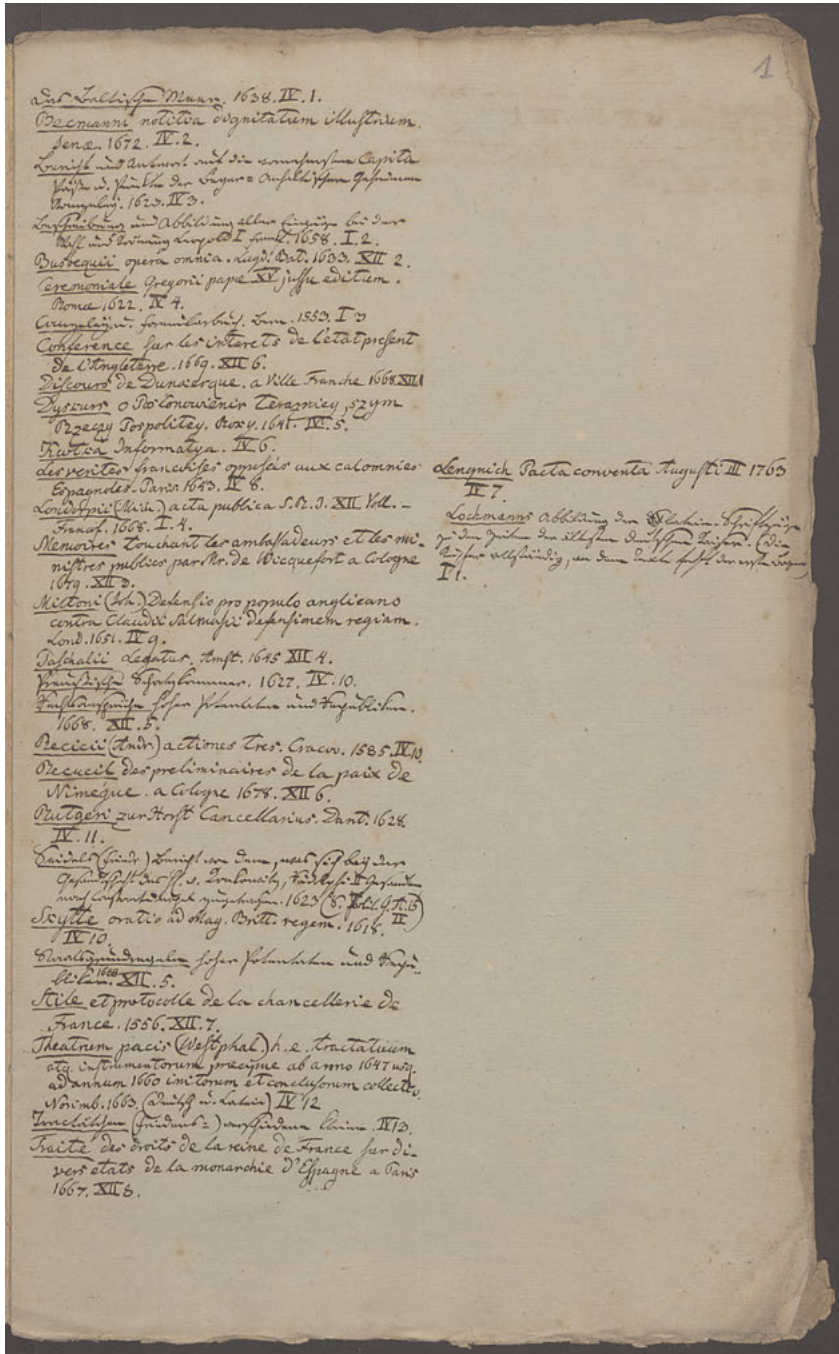 1
Das Baltische Meer. 1638. IV. 1.
Becmanni notitia dignitatum illustrium.
Jenæ. 1672. IV. 2.
Bericht und Antwort auf die vornehmsten Capita
der Beyer= Anhaltischen Geheimen
Cantzeley. 1623. IV 3.
Beschreibung und Abbildung aller Einzüge bei der
Wahl und Krönung Leopold I. Frankf. 1658. I. 2.
Busbequii opera omnia. Lugd. Bat. 1633. XII 2.
Ceremoniale Gregorii papæ XV jussu editum.
Romæ 1622. IV 4.
Cantzeley u. Formularbuch. Bern. 1553. I 3
Conference sur les interets de l'etat present
de l'Angleterre. 1669. XII 6.
Discours de Dunkerque. a Ville Franche 1668 XII 1
Dyskurs o Postanowieniu terazniey, szym
Rzeczy Pospolitey. Roky. 1641. IV. 5.
Krotka Informatya. IV 6.
Les verites françoises opposés aux calomnies
Espagnoles. Paris 1643. IV 8.
Londorpii (Mich.) acta publica S. R. I. XII Voll. -
Francof. 1668. I. 4.
Memoires touchant les ambassadeurs et les mi-
nistres publics par Mr. de Wicquefort a Cologne
1679. XII 3.
Miltoni (Joh.) Defensio pro populo anglicano
contra Claudii Salmasii defensionem regiam.
Lond. 1651. IV 9.
Paschalii Legatus. Amst. 1645 XII 4.
Preußische Schatzkammer. 1627. IV. 10.
hoher Potentaten und Republiken.
1668. XII. 5.
Recicii (Andr.) actiones tres. Cracov. 1585. IV 10.
Recueil des preliminaires de la paix de
Nimégue. a Cologne 1678. XII 6.
Rutgeri zur Horst Cancellarius. Dant. 1628
IV. 11.
Seidels (Friedr) Bericht von dem, was sich bey der
Gesandtschaft des H. v. Gesanden
nach Constantinopel zugetragen. 1623
Skytte oratio ad Mag. Britt. regem. 1618.
IV 10.
Staatsgrundregeln hoher Potentaten und Repu-
bliken. 1668 XII. 5.
Stile et protocolle de la chancellerie de
France. 1556. XII. 7.
Theatrum pacis (Westphal.) h. e. tractatuum
atq. instrumentorum præcipue ab anno 1647 usq.
ad annum 1660 initorum et conclusorum collectio.
Norimb. 1663. (deutsch u. Latein) IV 12
Tractätchen (Friedens=) verschiedene kleine. IV 13.
Traité des droits de la reine de France sur di-
vers etats de la monarchie d'Espagne a Paris
1667. XII 8.
Lengnich Pacta conventa Augusti III 1763
IV 7.
Lochmanns Abbildung der latein. Schriftzüge
zu den Zeiten der ältesten deutschen Kaiser. (die
Kupfer vollständig, an dem Texte fehlt der erste Bogen)
I 1.